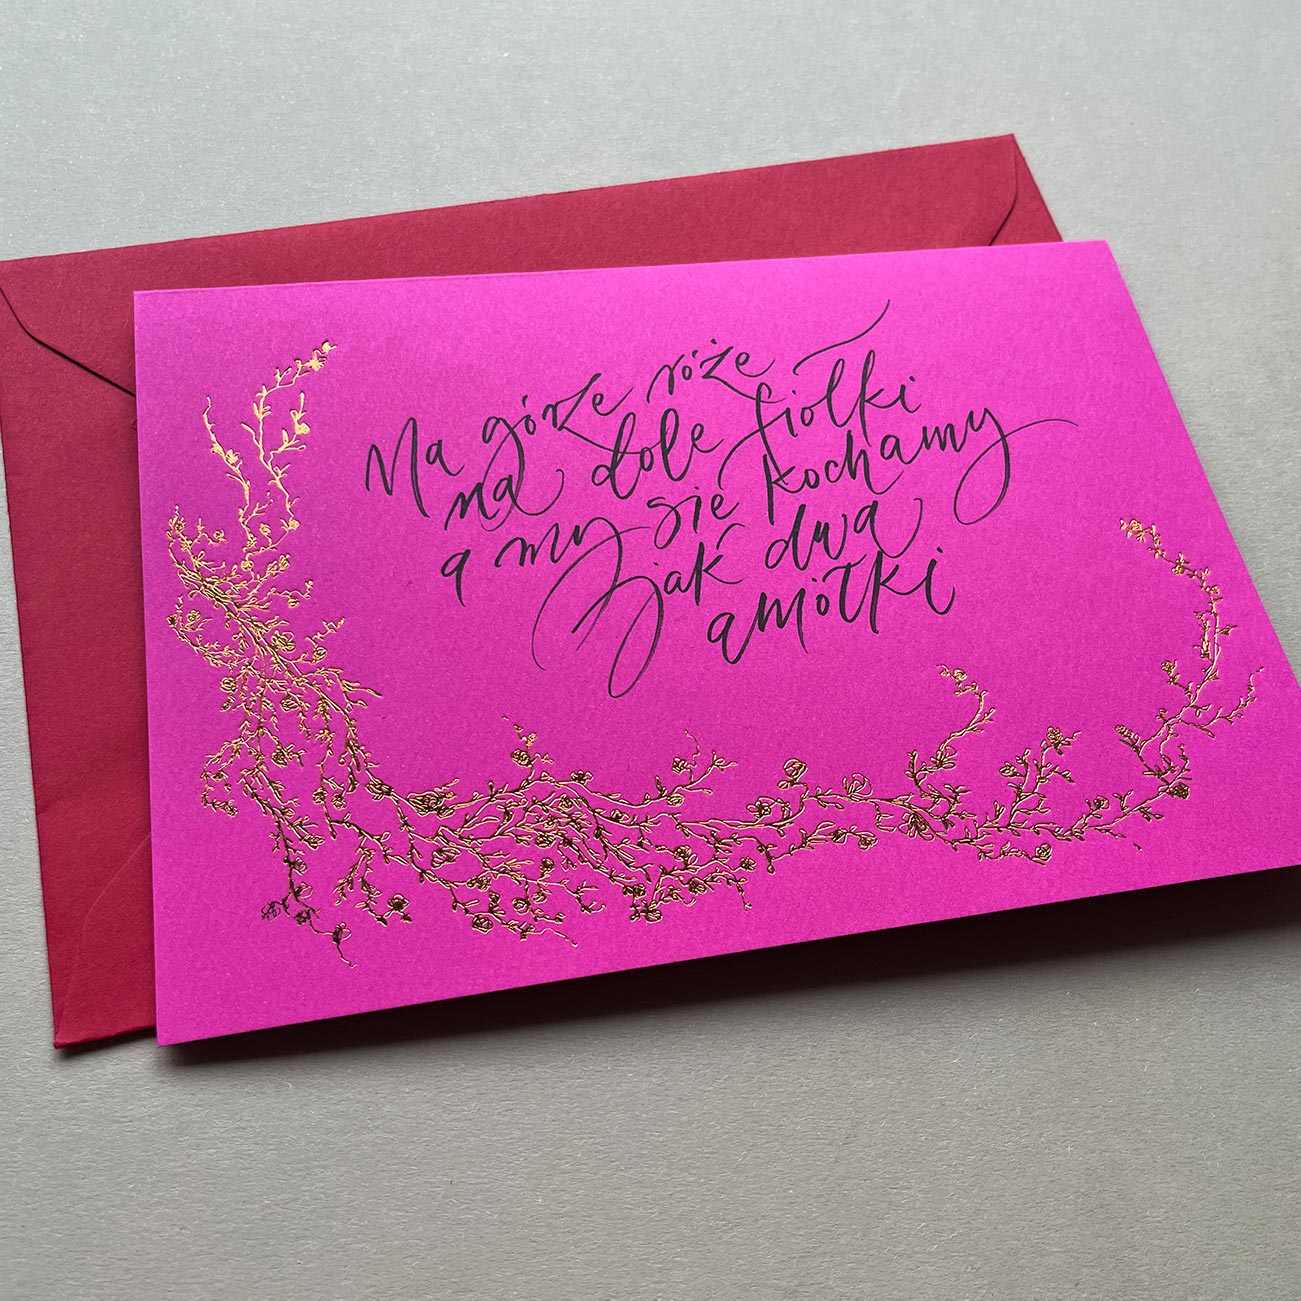 Na górze róże
na dole fiołki
a my się kochamy
jak dwa
amorki